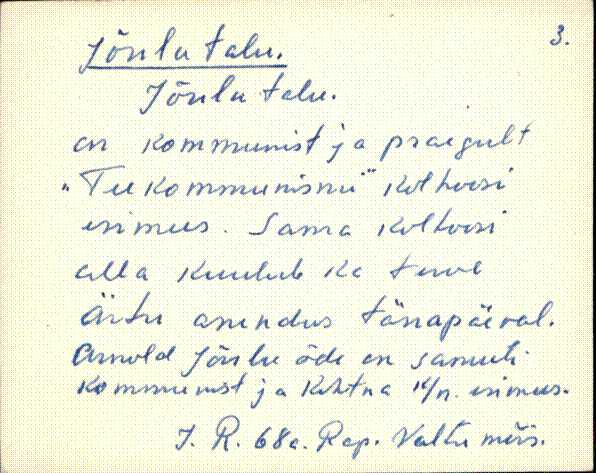 3.
Jõulu talu.
Jõulu talu.
on kommunist ja praegult
"Tee kommunismi" kolhoosi
esimees. Sama kolhoosi
alla kuulub ka terve
Ärtu asundus tänapäeval.
Arnold Jõulu õde on samuti
kommunist ja Kehtna k/n. esimees.
J. R. 68a. Rap. Valtu mõis.